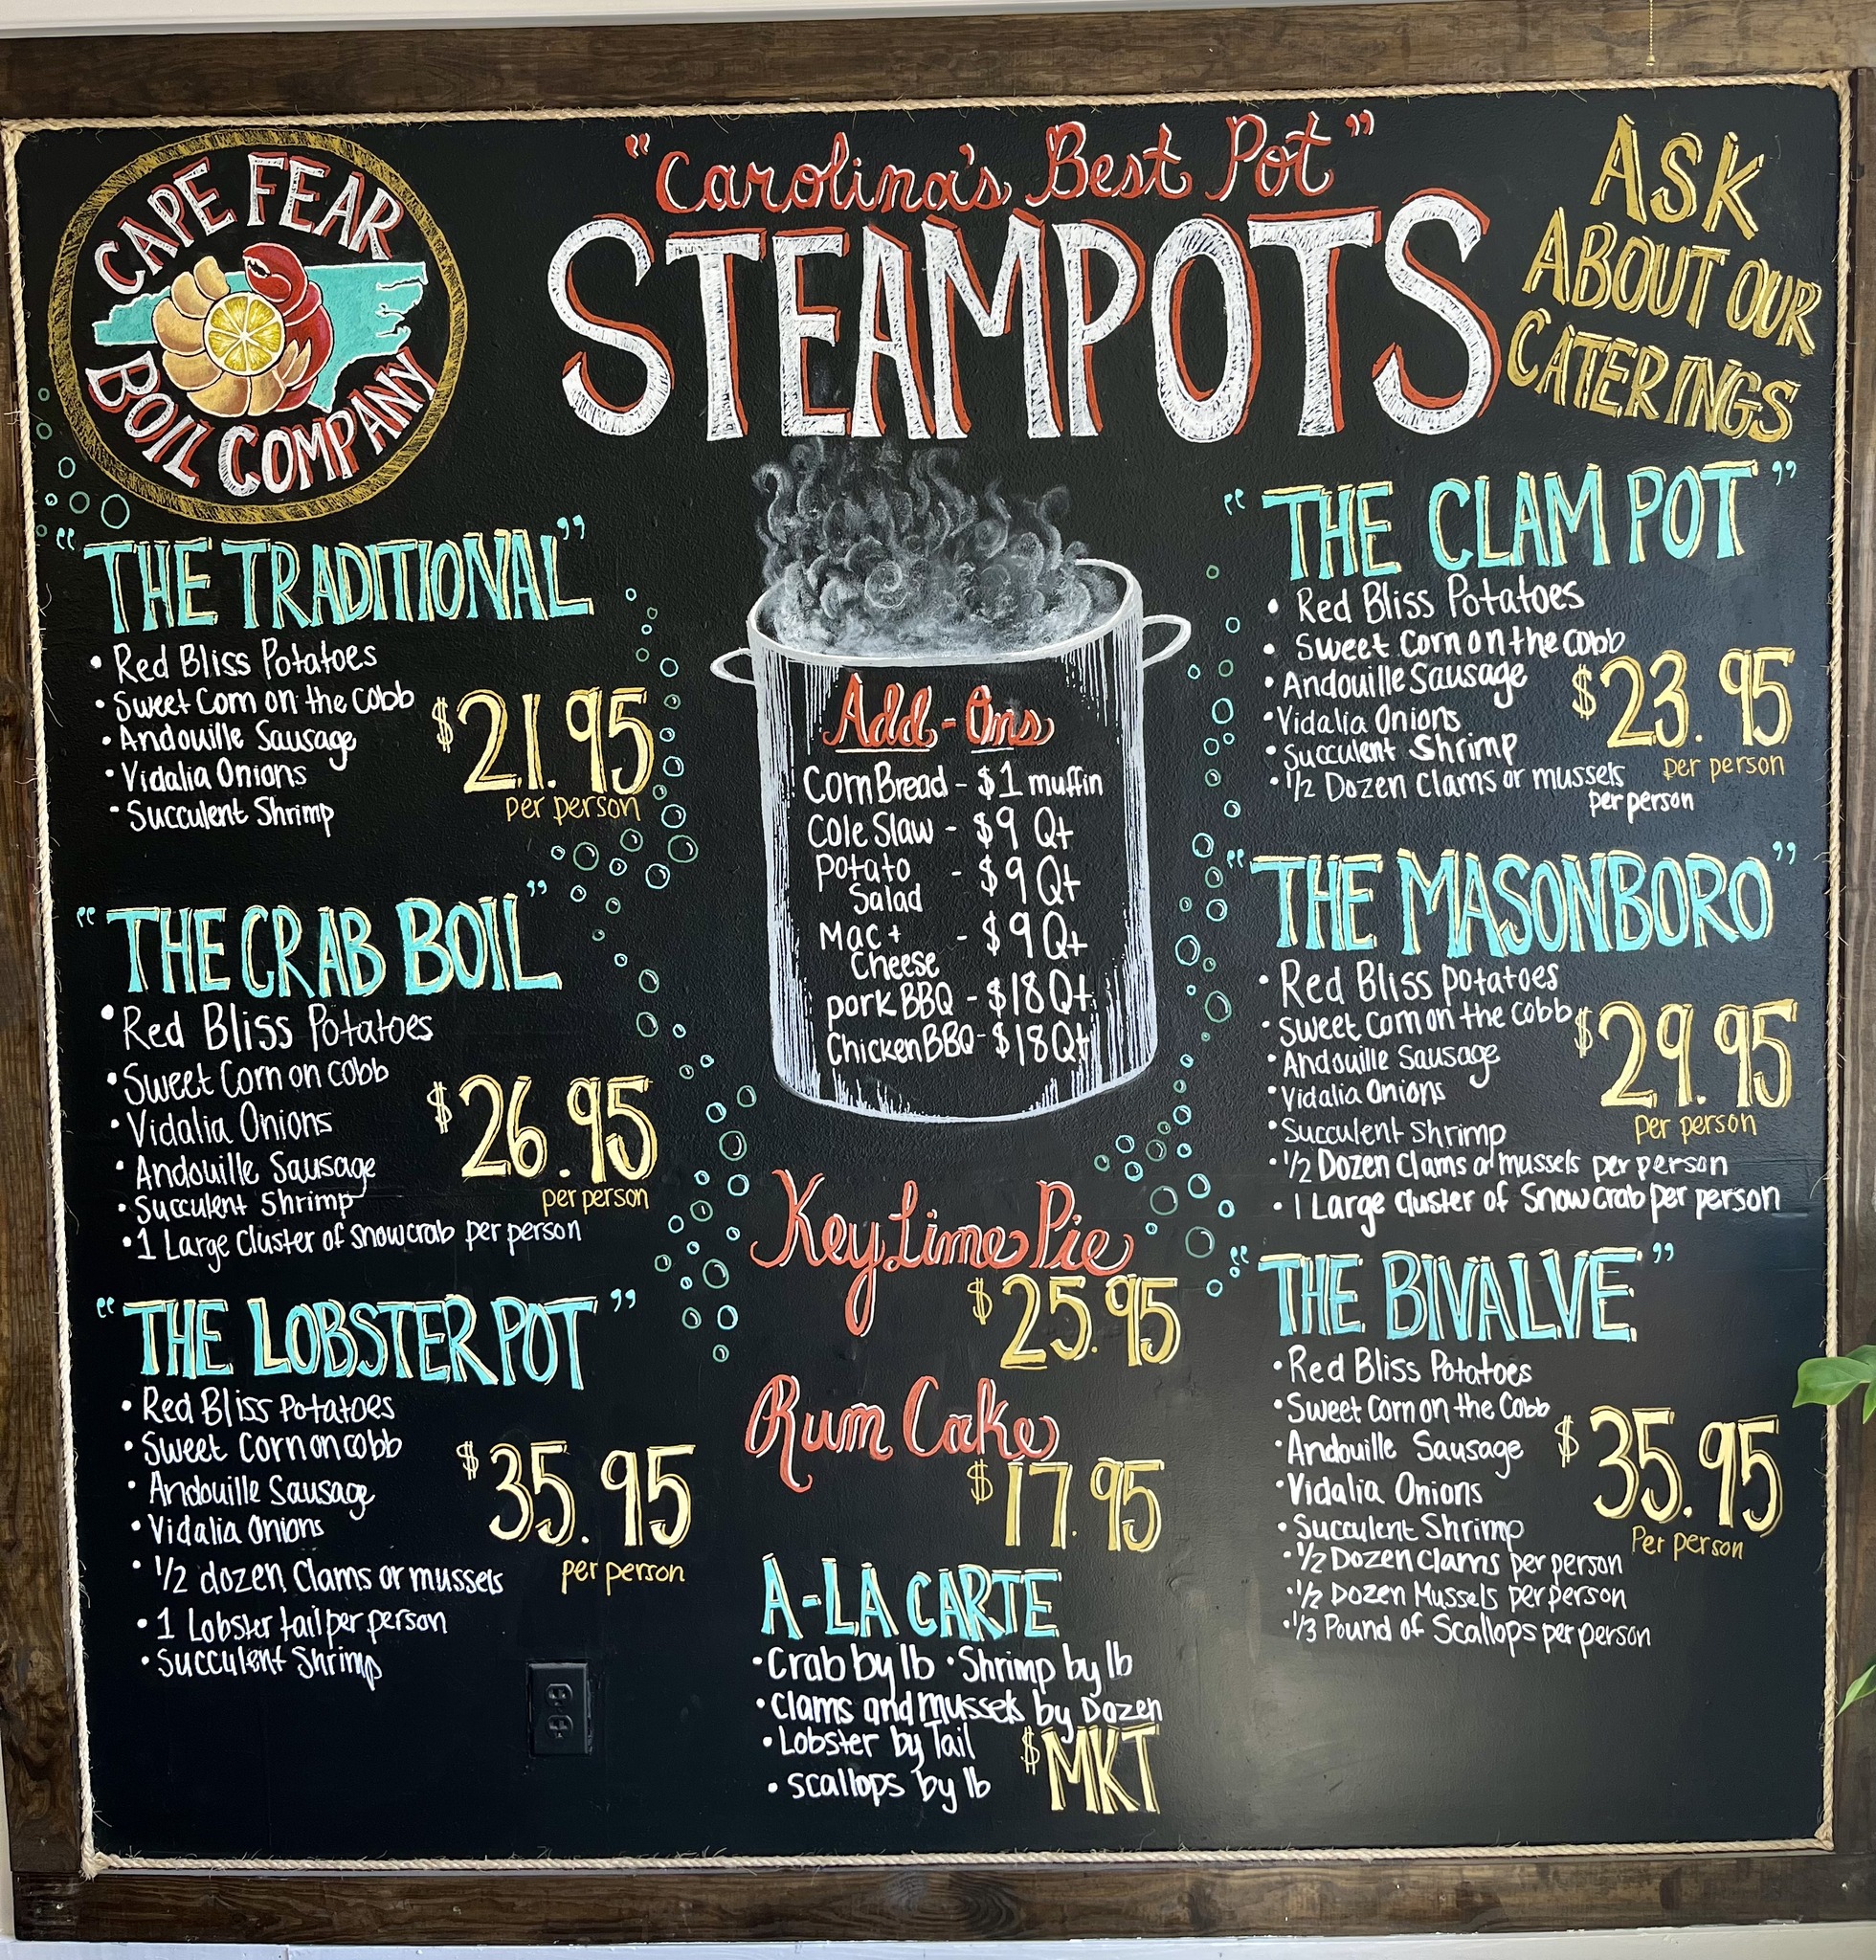 CAPE FEAR
BOIL COMPANY
"Carolina's Best Pot"
STEAMPOTS
ASK
ABOUT OUR
CATERINGS
"THE TRADITIONAL"
• Red Bliss Potatoes
• Sweet Corn on the Cobb
• Andouille Sausage
• Vidalia Onions
- Succulent Shrimp
$21.95
per person
"THE CRAB BOIL"
• Red Bliss Potatoes
• Sweet Corn on cobb
• Vidalia Onions
• Andouille Sausage
• Succulent Shrimp
• 1 Large Cluster of snowcrab per person
$26.95
per person
"THE LOBSTER POT"
• Red Bliss Potatoes
• Sweet Corn on cobb
• Andouille Sausage
• Vidalia Onions
• 1/2 dozen Clams or mussels
• 1 Lobster tail per person
• Succulent Shrimp
$35.95
per person
Add-Ons
Corn Bread - $1 muffin
Cole Slaw - $9 Qt
Potato
Salad - $9 Qt
Mac +
Cheese - $9 Qt
pork BBQ - $18 Qt
Chicken BBQ - $18 Qt
Key Lime Pie
$25.95
Rum Cake
$17.95
A-LA CARTE
• Crab by lb • Shrimp by lb
• Clams and mussels by Dozen
• Lobster by Tail
• scallops by lb
$MKT
"THE CLAM POT"
• Red Bliss Potatoes
• Sweet Corn on the cobb
• Andouille Sausage
• Vidalia Onions
• Succulent Shrimp
• 1/2 Dozen Clams or mussels
per person
$23.95
per person
"THE MASONBORO"
• Red Bliss potatoes
• Sweet Corn on the cobb
• Andouille Sausage
• Vidalia Onions
• Succulent Shrimp
• 1/2 Dozen Clams or mussels per person
• 1 Large Cluster of Snowcrab per person
$29.95
per person
"THE BIVALVE"
• Red Bliss Potatoes
• Sweet Corn on the Cobb
• Andouille Sausage
• Vidalia Onions
• Succulent Shrimp
• 1/2 Dozen Clams per person
• 1/2 Dozen Mussels per person
• 1/3 Pound of Scallops per person
$35.95
Per person